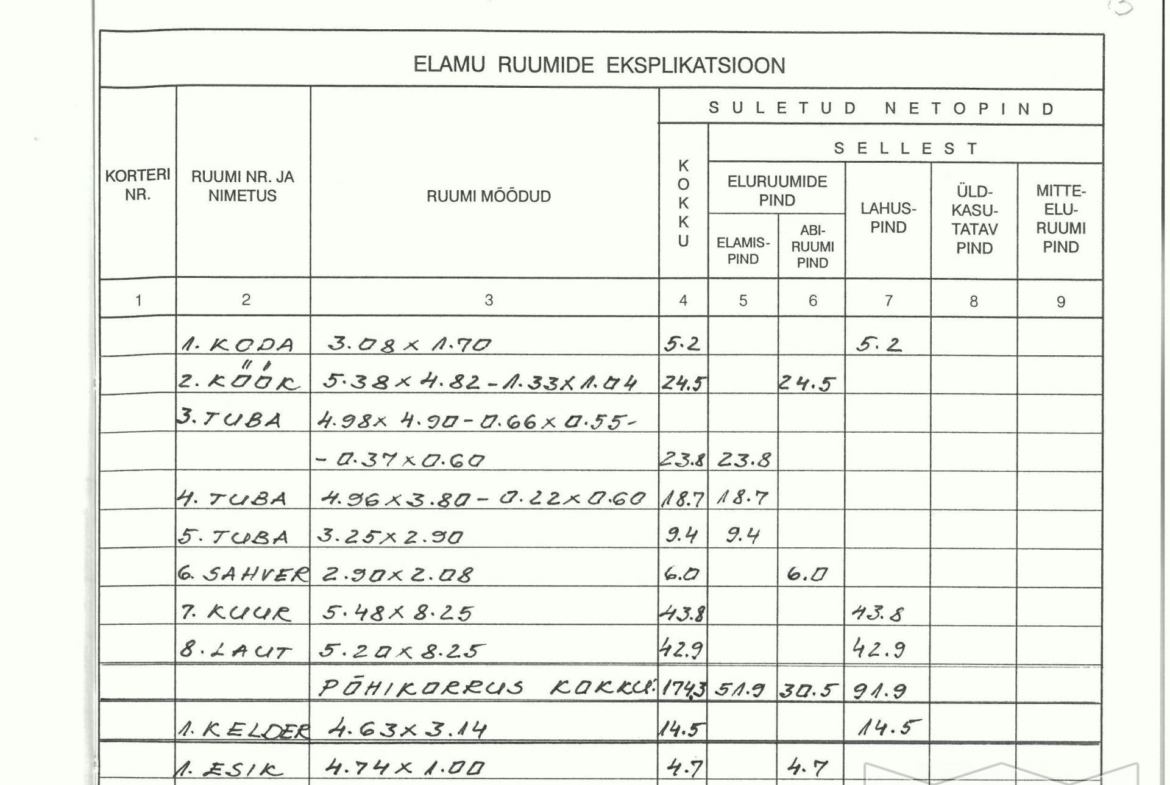 13
ELAMU RUUMIDE EKSPLIKATSIOON
KORTERI NR.
RUUMI NR. JA NIMETUS
RUUMI MÕÕDUD
SULETUD NETOPIND
KOKKU
SELLEST
ELURUUMIDE PIND
ELAMIS-PIND
ABI-RUUMI PIND
LAHUS-PIND
ÜLD-KASU-TATAV PIND
MITTE-ELU-RUUMI PIND
1 2 3 4 5 6 7 8 9
1. KODA 3.08 × 1.70 5.2 5.2
2. KÖÖK 5.38 × 4.82 - 1.33 × 1.04 24.5 24.5
3. TUBA 4.98 × 4.90 - 0.66 × 0.55 -
- 0.37 × 0.60 23.8 23.8
4. TUBA 4.96 × 3.80 - 0.22 × 0.60 18.7 18.7
5. TUBA 3.25 × 2.90 9.4 9.4
6. SAHVER 2.90 × 2.08 6.0 6.0
7. KUUR 5.48 × 8.25 43.8 43.8
8. LAUT 5.20 × 8.25 42.9 42.9
PÕHIKORRUS KOKKU: 174.3 51.9 30.5 91.9
1. KELDER 4.63 × 3.14 14.5 14.5
1. ESIK 4.74 × 1.00 4.7 4.7